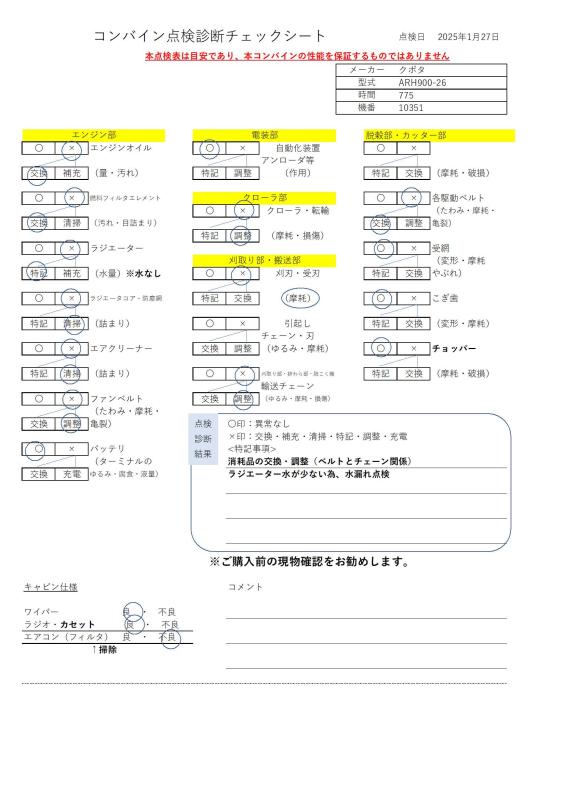 コンバイン点検診断チェックシート
点検日　2025年1月27日
本点検表は目安であり、本コンバインの性能を保証するものではありません
メーカー　クボタ
型式　ARH900-26
時間　775
機番　10351
エンジン部
〇　×　エンジンオイル
交換　補充　（量・汚れ）
〇　×　燃料フィルタエレメント
交換　清掃　（汚れ・目詰まり）
〇　×　ラジエーター
特記　補充　（水量）※水なし
〇　×　ラジエータコア・防塵網
特記　清掃　（詰まり）
〇　×　エアクリーナー
特記　清掃　（詰まり）
〇　×　ファンベルト
（たわみ・摩耗・
交換　調整　亀裂）
〇　×　バッテリ
（ターミナルの
交換　充電　ゆるみ・腐食・液量）
電装部
〇　×　自動化装置
アンローダ等
特記　調整　（作用）
クローラ部
〇　×　クローラ・転輪
特記　調整　（摩耗・損傷）
刈取り部・搬送部
〇　×　刈刃・受刃
特記　交換　（摩耗）
〇　×　引起し
チェーン・刃
交換　調整　（ゆるみ・摩耗）
〇　×　刈取り部・排わら部・脱こく機
輸送チェーン
交換　調整　（ゆるみ・摩耗・損傷）
脱穀部・カッター部
〇　×
特記　交換　（摩耗・破損）
〇　×　各駆動ベルト
（たわみ・摩耗・
交換　調整　亀裂）
〇　×　受網
（変形・摩耗
特記　交換　やぶれ）
〇　×　こぎ歯
特記　交換　（変形・摩耗）
〇　×　チョッパー
特記　交換　（摩耗・破損）
点検
診断
結果
〇印：異常なし
×印：交換・補充・清掃・特記・調整・充電
<特記事項>
消耗品の交換・調整（ベルトとチェーン関係）
ラジエーター水が少ない為、水漏れ点検
※ご購入前の現物確認をお勧めします。
キャビン仕様
ワイパー　良　・　不良
ラジオ・カセット　良　・　不良
エアコン（フィルタ）　良　・　不良
↑掃除
コメント